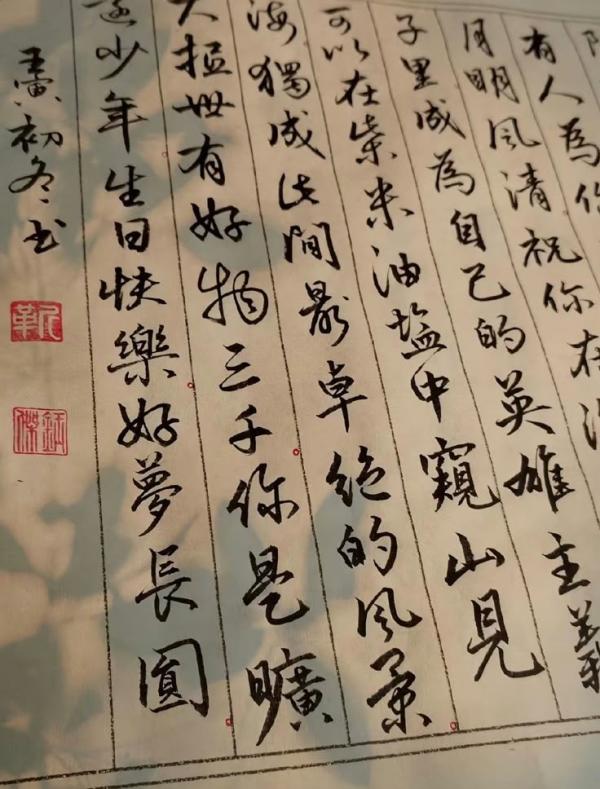 有人為你
月明風清祝你在
子里成為自己的英雄主義
可以在柴米油盐中窺山見
海獨成此間最卓绝的風景
大抵世有好物三千你是曠
少年生日快樂好夢長圓
壬寅初冬书